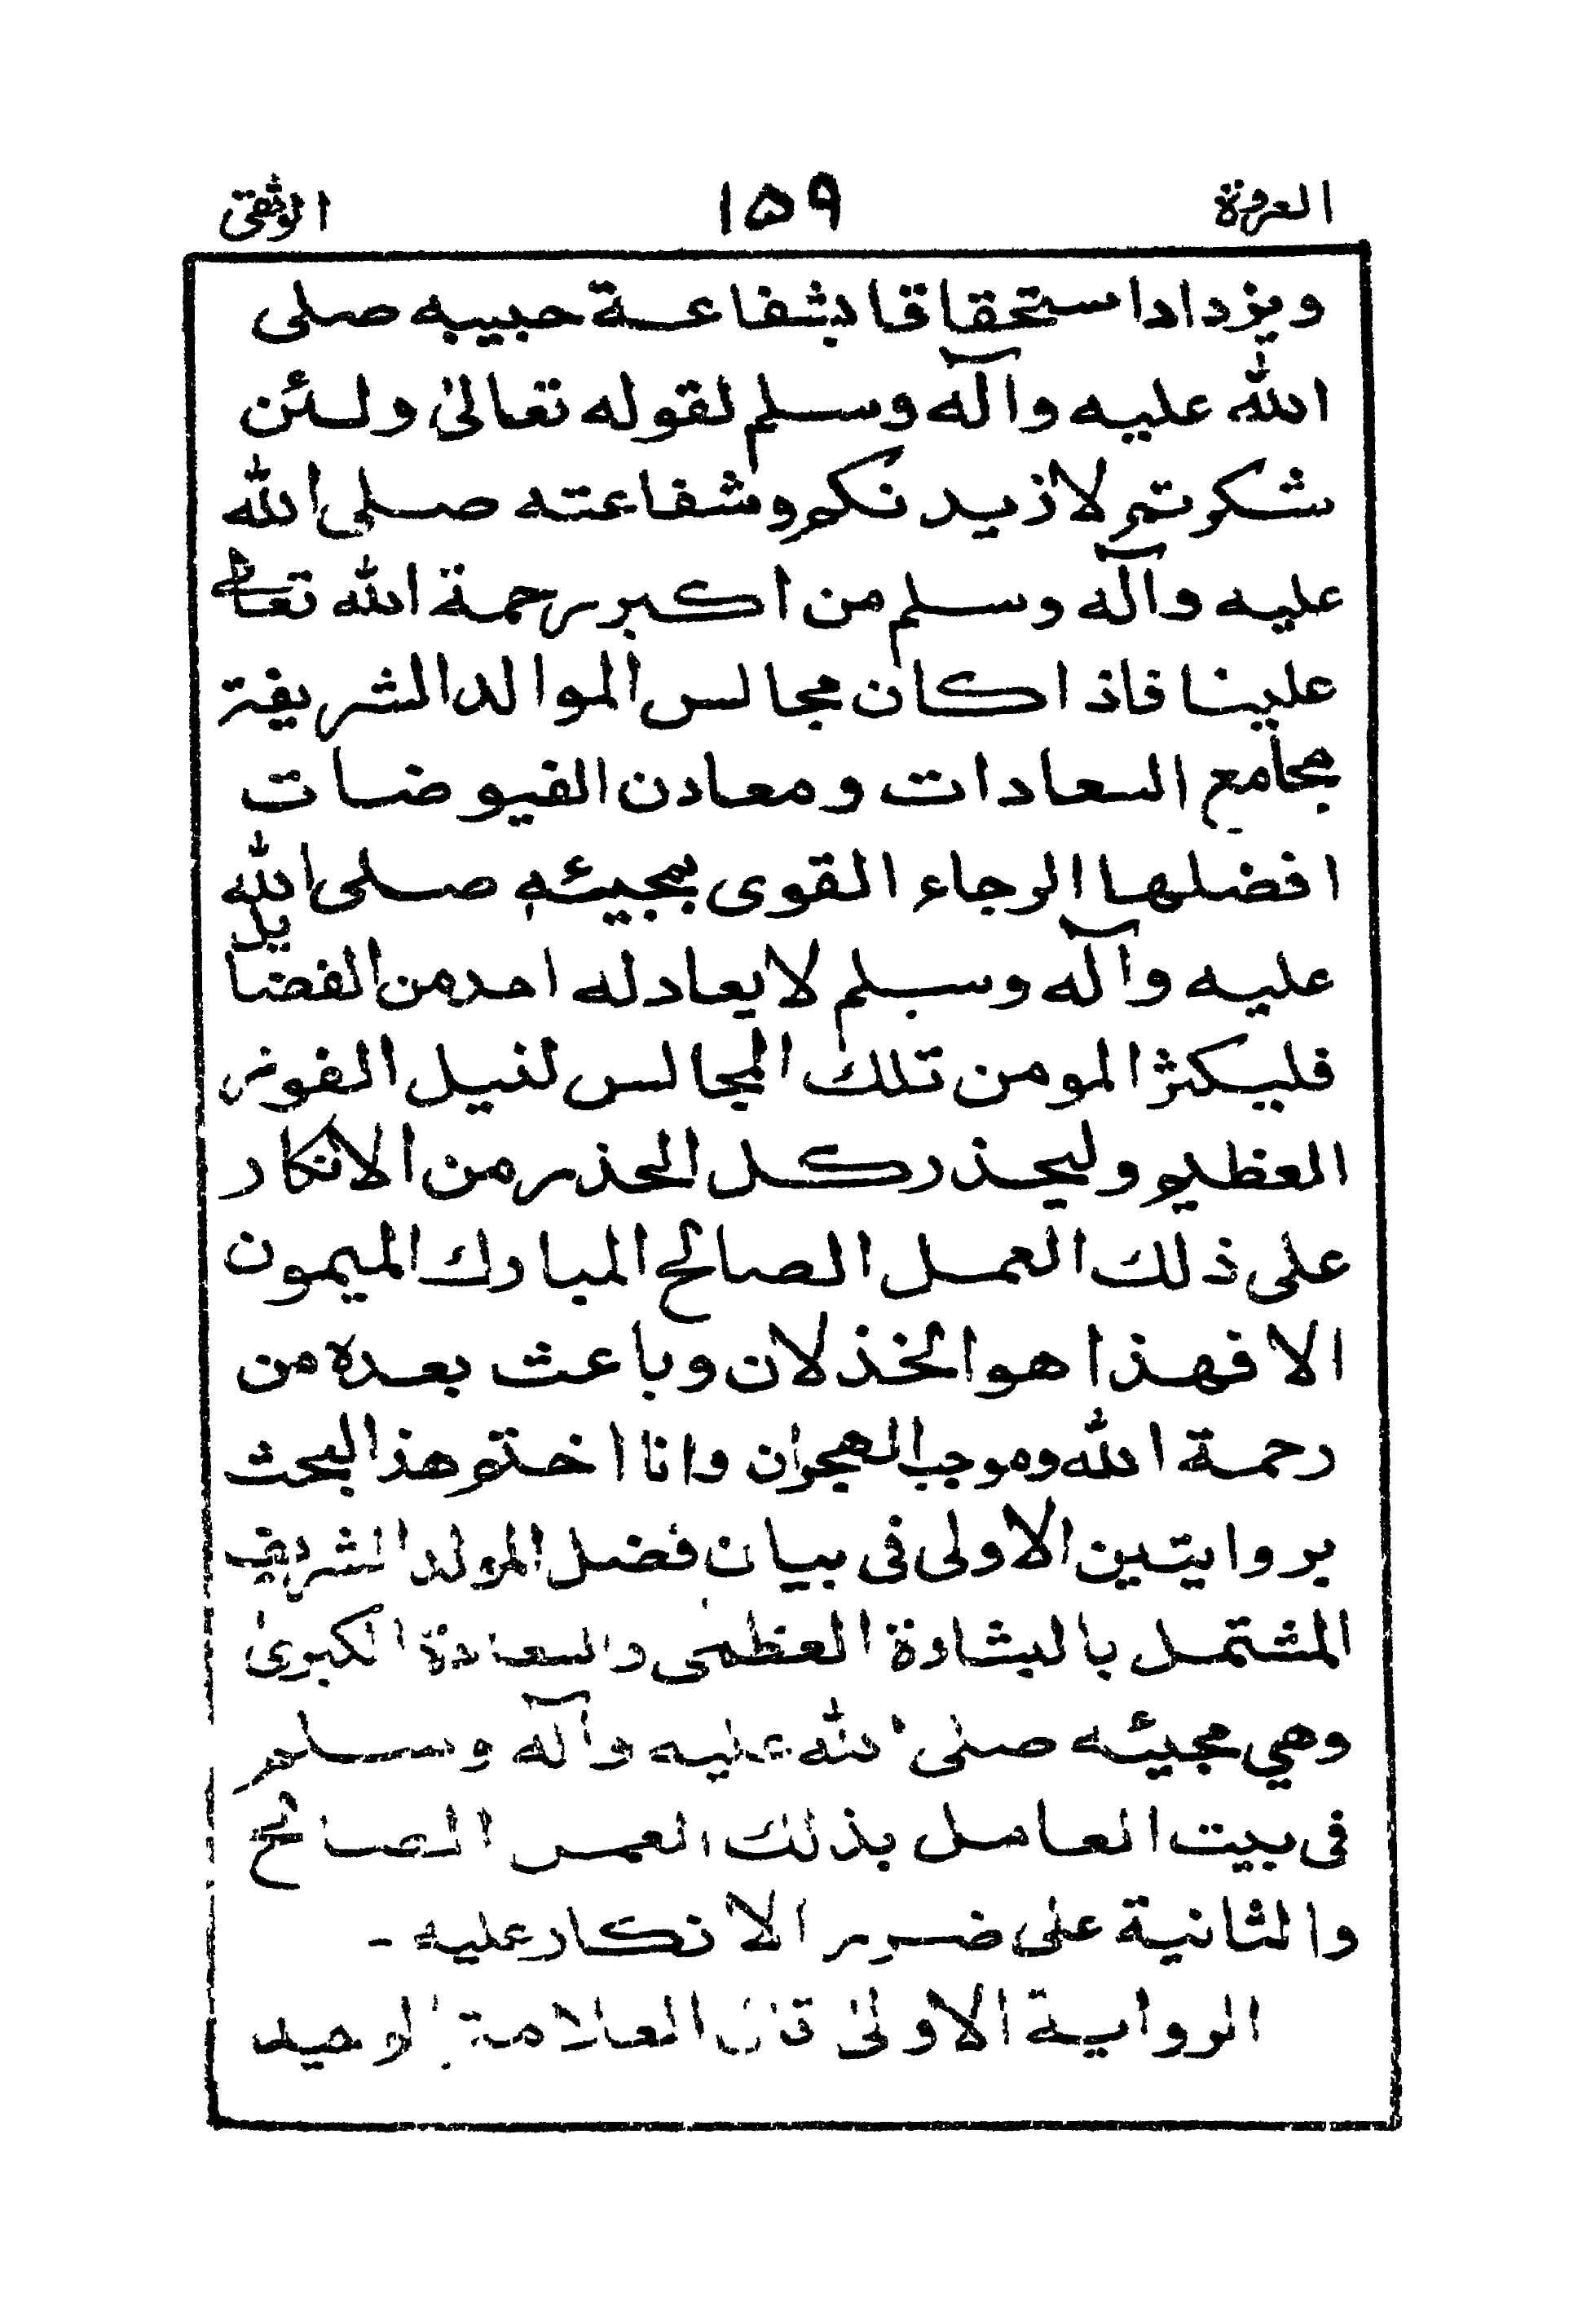 العروة ١٥٩ الوثقى
ويزداد استحقاقا بشفاعة حبيبه صلى
الله عليه وآله وسلم لقوله تعالىٰ ولئن
شكرتم لازيدنكم وشفاعته صلى الله
عليه وآله وسلم من اكبر رحمة الله تعالى
علينا فاذا كان مجالس الموالد الشريفة
مجامع السعادات ومعادن الفيوضات
افضلها الرجاء القوى بمجيئه صلى الله
عليه وآله وسلم لا يعادله احد من الفضايل
فليكثر المومن تلك المجالس لنيل الفوز
العظيم وليحذر كل الحذر من الانكار
على ذلك العمل الصالح المبارك الميمون
الا فهذا هو الخذلان وباعث بعده من
رحمة الله وموجب الهجران وانا اختم هذا البحث
بروايتين الاولى فى بيان فضل المولد الشريف
المشتمل بالبشارة العظمى والسعادة الكبرىٰ
وهي مجيئه صلى الله عليه وآله وسلم
فى بيت العامل بذلك العمل الصالح
والثانية على ضرر الانكار عليه -
الرواية الاولىٰ قال العلامة الوحيد